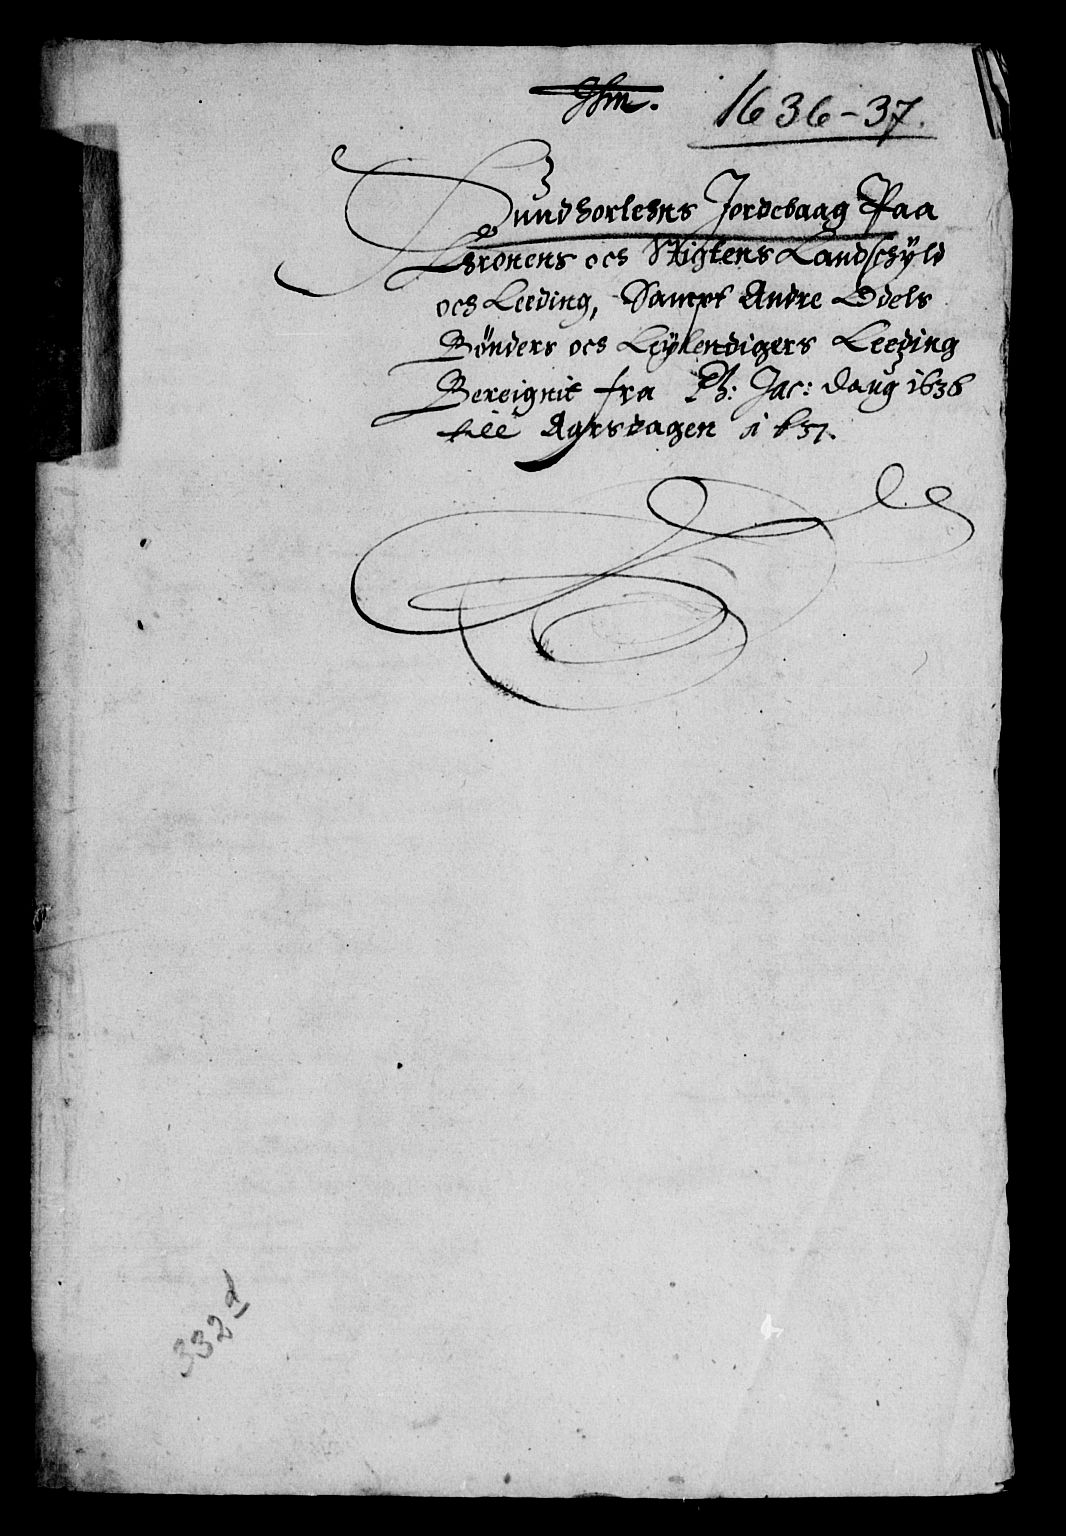 1636-37.
Sundhorlehns Jordebaag Paa
Chronens och Stigtens Landschÿld
och Leeding, Sampt Andre Odels
Bønders och Leÿlendigers Leeding
Bereignit fra Ph: Jac: daug 1636
till Aarsdagen 1637.
332 d